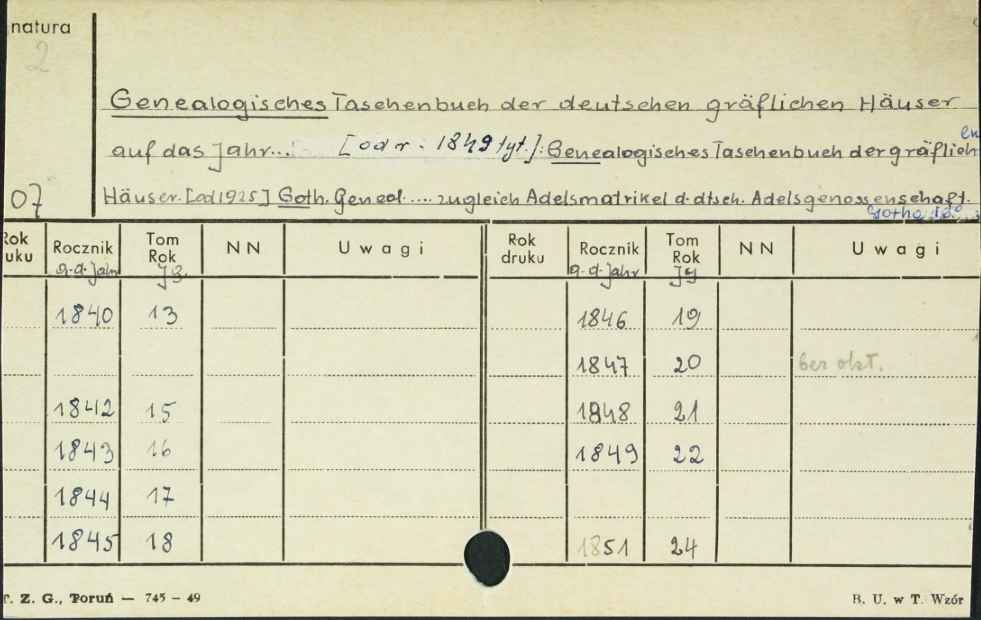 natura
2
Genealogisches Taschenbuch der deutschen gräflichen Häuser
auf das Jahr... [od r. 1849 tyt.]: Genealogisches Taschenbuch der gräflichen
07
Häuser. [od 1925] Goth. Geneal. .... zugleich Adelsmatrikel d. dtsch. Adelsgenossenschaft.
Gotha
Rok uku Rocznik Tom Rok N N Uwagi Rok druku Rocznik Tom Rok N N Uwagi
a. d. Jahr Jg a. d. Jahr Jg
1840 13 1846 19
1847 20 bez okł.
1842 15 1848 21
1843 16 1849 22
1844 17
1845 18 1851 24
T. Z. G., Toruń — 745 – 49 B. U. w T. Wzór